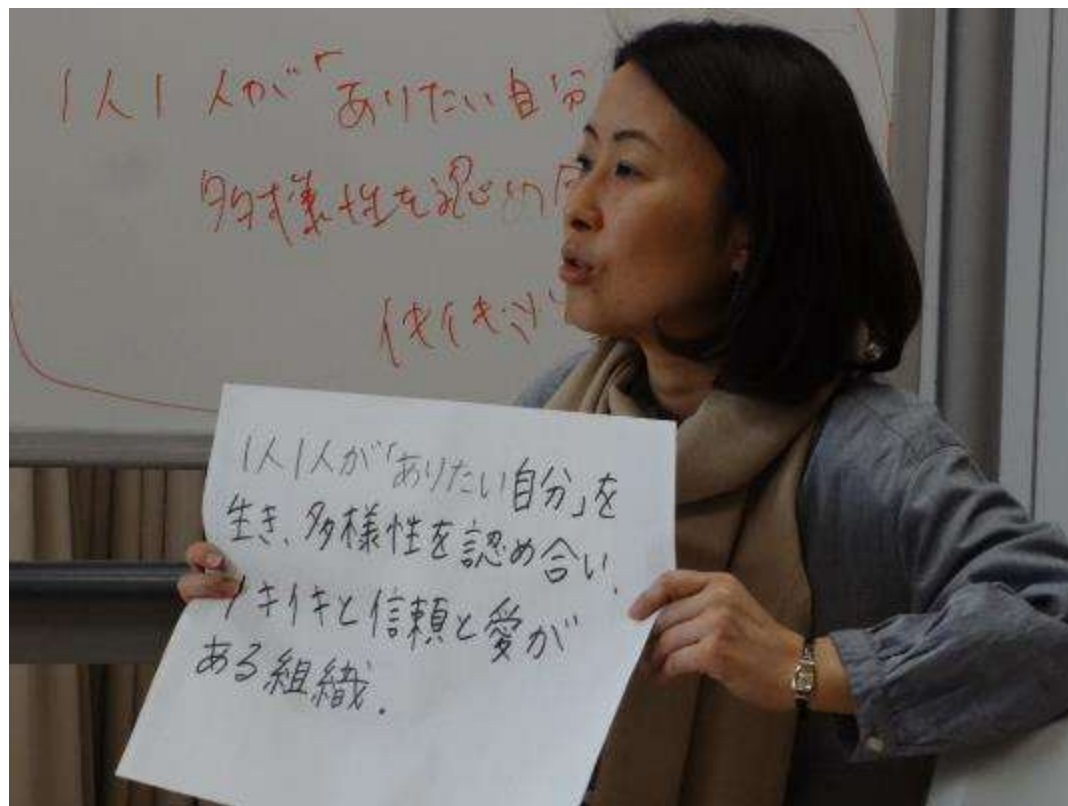 1人1人が「ありたい自分
多様性を認め
イキイキ
1人1人が「ありたい自分」を
生き、多様性を認め合い、
イキイキと信頼と愛が
ある組織.